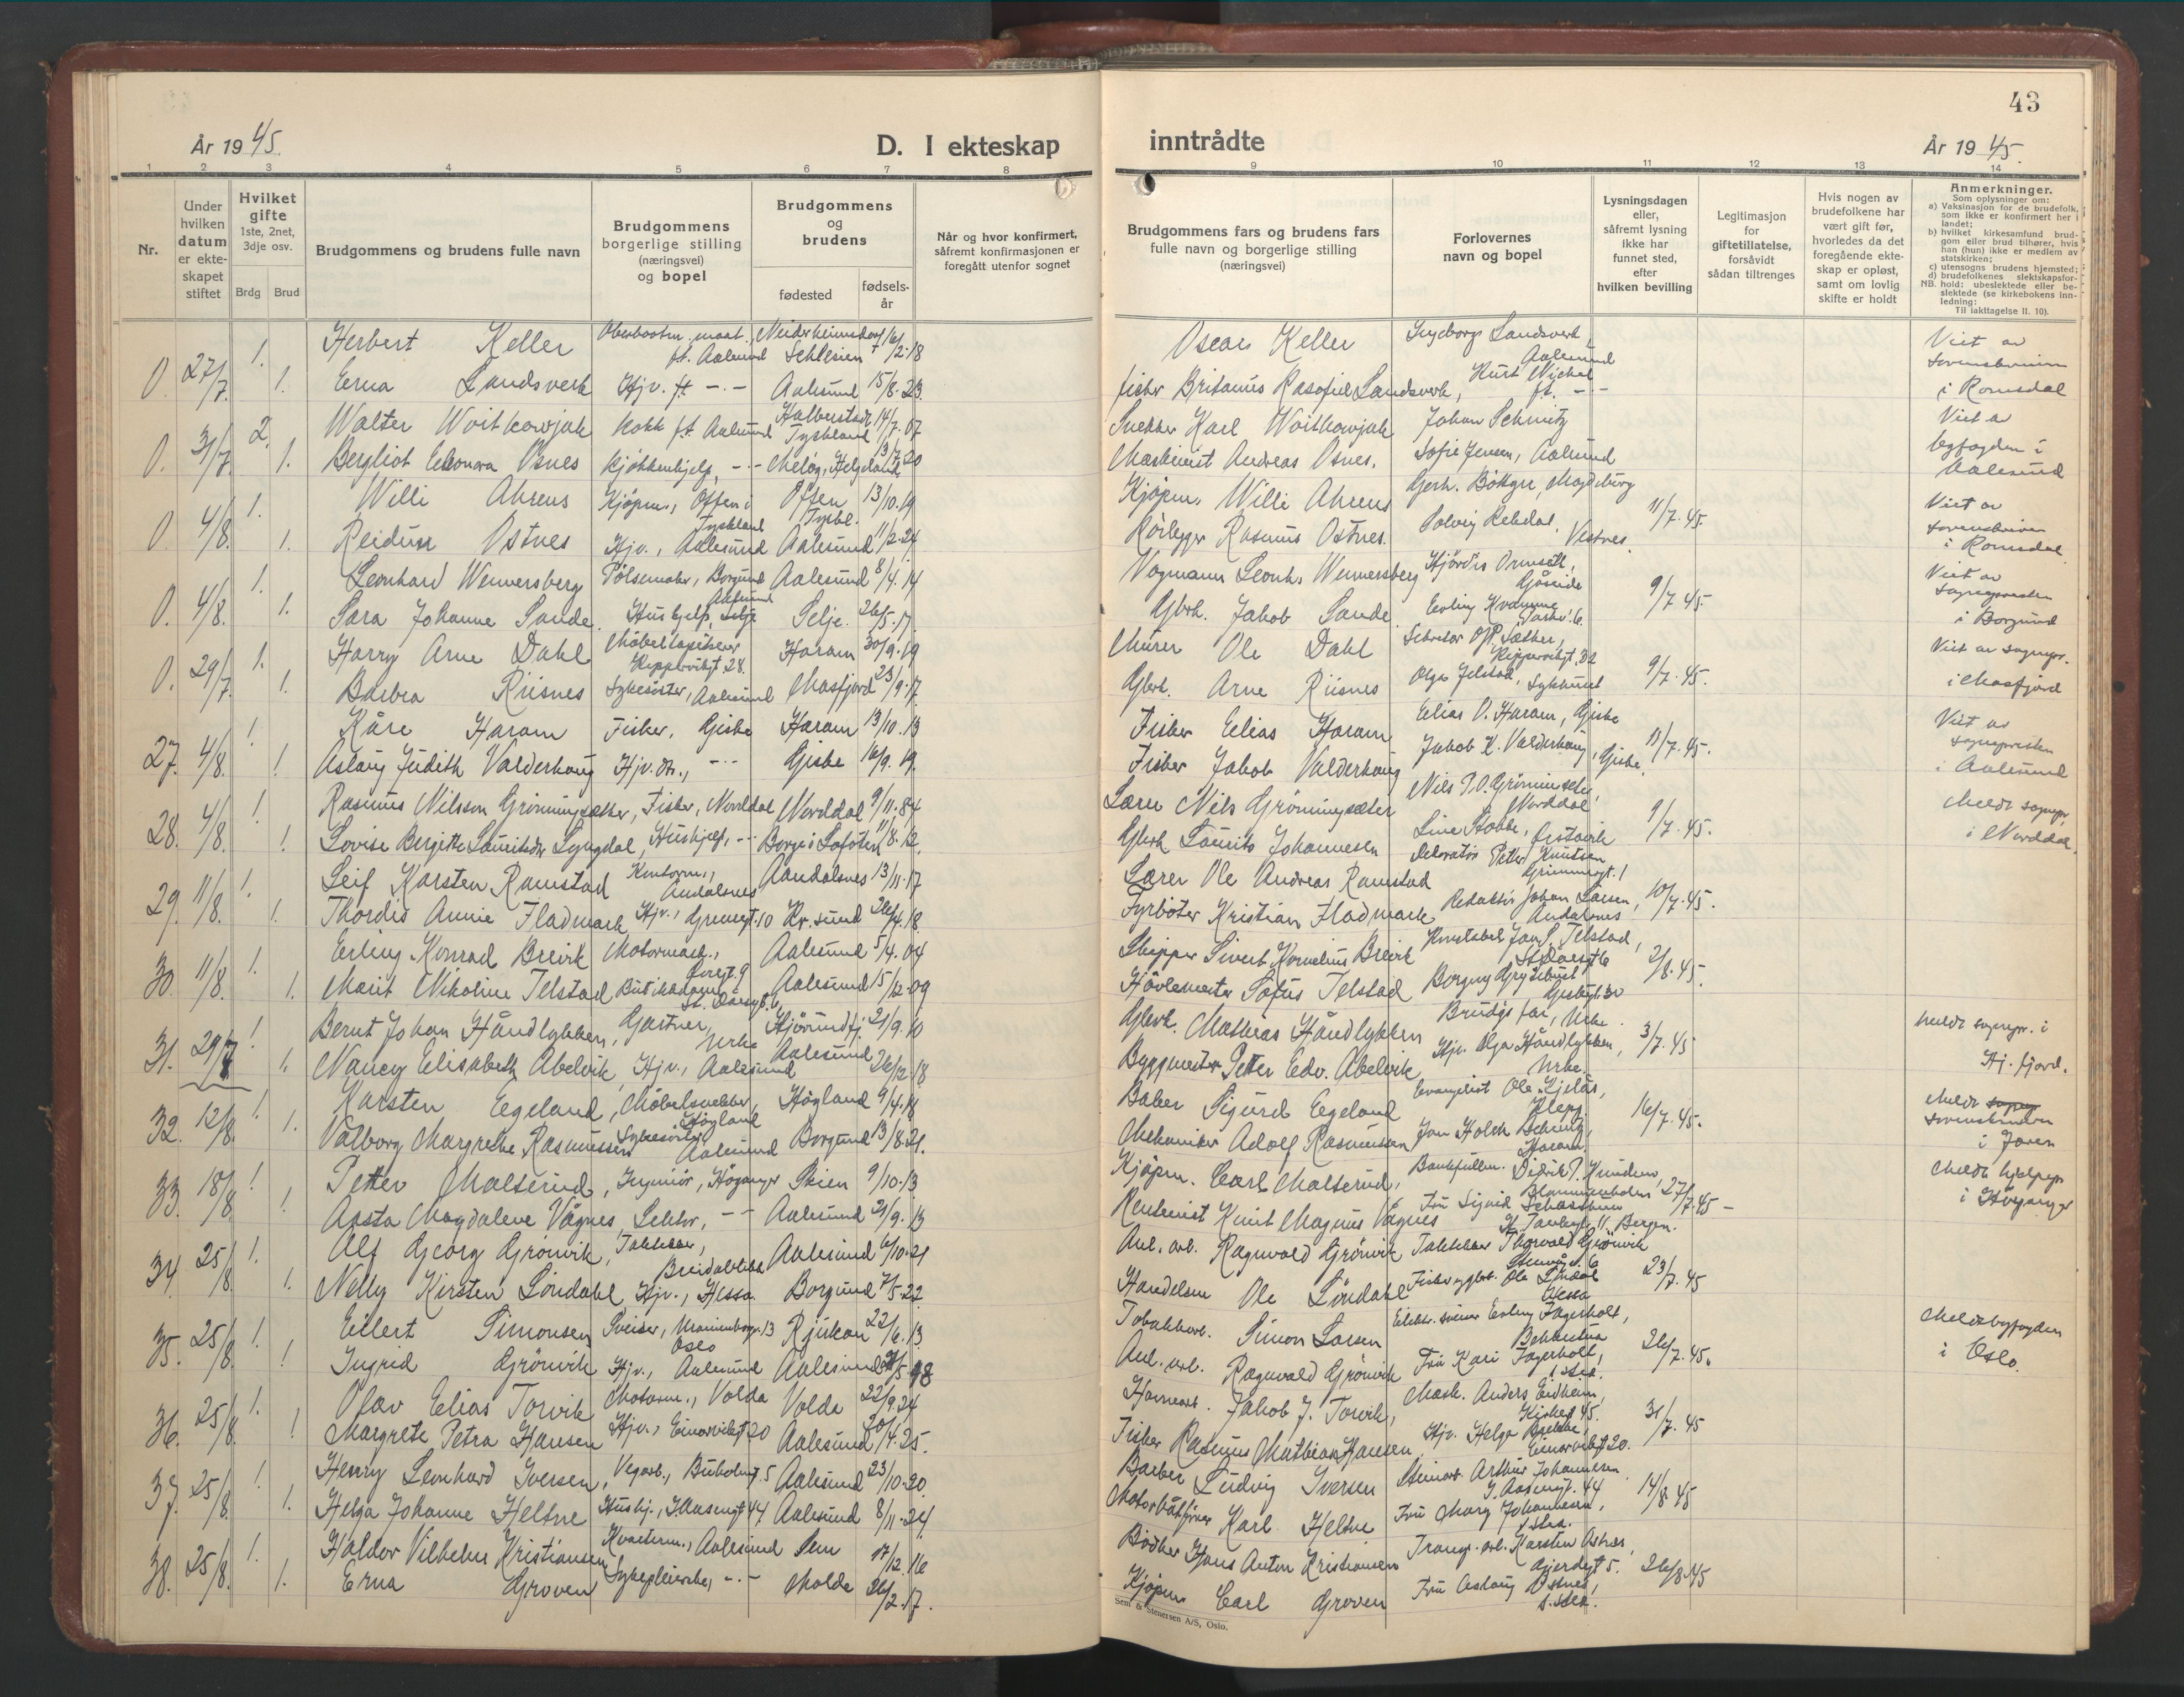 43
År 1945.
D. I ekteskap
inntrådte
År 1945.
1 2 3 4 5 6 7 8 9 10 11 12 13 14
Nr.
Under hvilken datum er ekteskapet stiftet
Hvilket gifte 1ste, 2net, 3dje osv.
Brdg Brud
Brudgommens og brudens fulle navn
Brudgommens borgerlige stilling (næringsvei) og bopel
Brudgommens og brudens
fødested
fødselsår
Når og hvor konfirmert, såfremt konfirmasjonen er foregått utenfor sognet
Brudgommens fars og brudens fars fulle navn og borgerlige stilling (næringsvei)
Forlovernes navn og bopel
Lysningsdagen eller, såfremt lysning ikke har funnet sted, efter hvilken bevilling
Legitimasjon for giftetillatelse, forsåvidt sådan tiltrenges
Hvis nogen av brudefolkene har vært gift før, hvorledes da det foregående ekteskap er opløst, samt om lovlig skifte er holdt
Anmerkninger.
Som oplysninger om:
a) Vaksinasjon for de brudefolk, som ikke er konfirmert her i landet;
b) hvilket kirkesamfund brudgom eller brud tilhører, hvis han (hun) ikke er medlem av statskirken;
c) utensogns brudens hjemsted;
d) brudefolkenes slektskapsforhold: ubeslektede eller beslektede (se kirkebokens innledning:
NB.
Til iakttagelse II. 10).
0. 27/7. 1. Herbert Keller ft. Aalesund Schlesien 16/2.18 Oscar Keller Ingeborg Landsverk, Aalesund Viet av sorenskriveren i Romsdal
1. Erna Landsverk Hjv. ft -"- Aalesund 15/8.23. fisker Landsverk, Kurt ft. -"-
0. 31/7. 2. Walter Woitkowjak Kokk ft Aalesund Halberstadt Tyskland 14/7.07 Snekker Karl Woitkowjak Johan Schmitz Viet av byfogden i Aalesund
1. Bergliot Eleonora Osnes Kjökkenhjelp, -"- Meløy, Helgeland 13/7.20 Maskinist Andreas Osnes. Sofie Jensen, Aalesund
0. 4/8. 1. Willi Ahrens Kjöpm., Offen i Tyskland Offen Tyskl. 13/10.19 Kjöpm. Willi Ahrens Gerh. Böttger, Magdeburg 11/7.45. Viet av sorenskriveren i Romsdal
1. Reidun Ostnes Hjv., Aalesund Aalesund 11/2.24 Rörlegger Rasmus Ostnes. Solveig Rekdal, Vestnes.
0. 4/8. 1. Leonhard Wennersberg Pölsemaker, Borgund Aalesund 8/4.14 Vognmann Leonh. Wennersberg Hjördis Ormseth, Gåseide 9/7.45. Viet av sognepresten i Borgund
1. Sara Johanne Sande. Hushjelp, Selje Selje. 26/5.17 Gbrk. Jakob Sande Erling Kvamme
0. 29/7. 1. Harry Arne Dahl Möbeltapetserer Kippervikgt 28. Haram 30/9.19 Murer Ole Dahl Sekretær O.P. Sæther, Kippervikgt. 32 9/7.45. Viet av sognepr. i Masfjord
1. Barbra Riisnes Sykesöster, Aalesund Masfjord 23/9.17 Gbrk. Arne Riisnes Olga Jelstad, Sykehuset
27. 4/8. 1. Kåre Haram Fisker, Giske Haram 13/10.13 Fisker Elias Haram Elias O. Haram, Giske 11/7.45. Viet av sognepresten i Aalesund
1. Aslaug Judith Valderhaug Hjv. dtr., -"- Giske 16/9.19. Fisker Jakob Valderhaug Jakob K. Valderhaug, Giske.
28. 4/8. 1. Rasmus Nilsson Gröningsæter, Fisker, Norddal Norddal 9/11.84 Lærer Nils Gröningsæter Nils P.O. Gröningsæter, Norddal 9/7.45. Meldt sognepr. i Norddal.
1. Lovise Bergitte Lauritsdtr Lyngdal, Hushjelp, -"- Borge i Lofoten 11/8.12. Gbrk Laurits Johannesen Line Stobbe,
29. 11/8. 1. Leif Karsten Ramstad Kontorm., Andalsnes Aandalsnes 13/11.17 Lærer Ole Andreas Ramstad Dekoratör Petter Knutsen Grimmergt. 1 10/7.45.
1. Thordis Annie Fladmark Hjv., Grensegt. 10 Kr.sund 26/4.18. Fyrböter Kristian Fladmark Redaktör Johan Larsen, Andalsnes
30. 11/8. 1. Erling Konrad Breivik Motormask., Aalesund 5/4.04 Skipper Sivert Kornelius Breivik Konstabel Jon S. Telstad, St. Olavsgt 6 2/8.45.
1. Marit Nikoline Telstad Butikkdame, St. Olavsgt. 6 Aalesund 15/12.09 Hövlemester Sofus Telstad Borgny
31. 29/7 1. Bernt Johan Håndlykken, Gartner, Urke Hjörundfj. 21/9.10 Gbrk. Mathias Håndlykken Brudgs far, Urke. 3/7.45 Meldt sognepr. i Hj.fjord.
1. Nancy Elisabeth Abelvik, Hjv., Aalesund Aalesund 26/12.18 Byggmester Petter Edv. Abelvik Hjv. Olga Håndlykken, Urke.
32. 12/8. 1. Karsten Eegeland, Möbelsnekker, Högland Högland 9/4.18 Baker Sigurd Eegeland Evangelist Ole Klepp 16/7.45. Meldt sorenskriveren i Jæren
1. Valborg Margrethe Rasmussen Sykesöster Aalesund Borgund 13/8.21. Mekaniker Adolf Rasmussen Jon Holck Haram.
33. 18/8. 1. Petter Malterud, Ingeniör, Höyanger Skien 9/10.13 Kjöpm. Carl Malterud, Bankfullm. Didrik T. 27/7.45 Meldt hjelpepr i Höyanger
1. Aasta Magdalene Vågnes, Lektor, -"- Aalesund 21/9.13 Rentenist Knut Magnus Vågnes Fru Sigrid Bergen.
34. 25/8. 1. Alf Georg Grönvik, Taktekker, Breidablikk Aalesund 6/10.21 Anl. arb. Ragnvald Grönvik Taktekker Thorvald Grönvik 23/7.45
1. Nelly Kirsten Löndahl Hjv., Hessa. Borgund 7/5.22 Handelsm Ole Löndahl Ole Hessa
35. 25/8. 1. Eilert Simonsen Sveiser, 13 Oslo Rjukan 22/6.13 Tobakkarb. Simon Larsen Elektr. sveiser Erling Fagerholt, Bekkestua 26/7.45. Meldt byfogden i Oslo.
1. Ingrid Grönvik Hjv., Aalesund Aalesund Anl. arb. Ragnvald Grönvik Fru Kari Fagerholt, s. sted.
36. 25/8. 1. Olav Elias Torvik Motorm., Volda Volda 22/9.24 Jakob J. Torvik, Mask. Anders Eidheim, 45. 31/7.45
1. Margrete Petra Hansen Hjv., Einarvikgt 20 Aalesund 20/4.25. Fisker Rasmus Mathias Hansen Hjv. Helga Einarvikgt 20.
37. 25/8. 1. Henry Leonhard Iversen, Vegarb., Buholmgt. 5 Aalesund 23/10.20. Barber Ludvig Iversen Arthur Johannesen, I. Aasengt. 44 14/8.45
1. Helga Johanne Heltne Hushj., I. Aasengt 44 Aalesund 8/11.24. Karl Heltne Fru Marg Johannesen, s. sted.
38. 25/8. 1. Haldor Vilhelm Kristiansen Aalesund Sem 17/12.16 Bödker Hans Anton Kristiansen Transp. arb. Karsten Ostnes, Gjerdegt 5. 26/8.45
1. Erna Groven Sykepleierske, -"- Molde 26/2.17. Kjöpm. Carl Groven Fru Aslaug Ostnes, s. sted.
Sem & Stenersen A/S, Oslo.